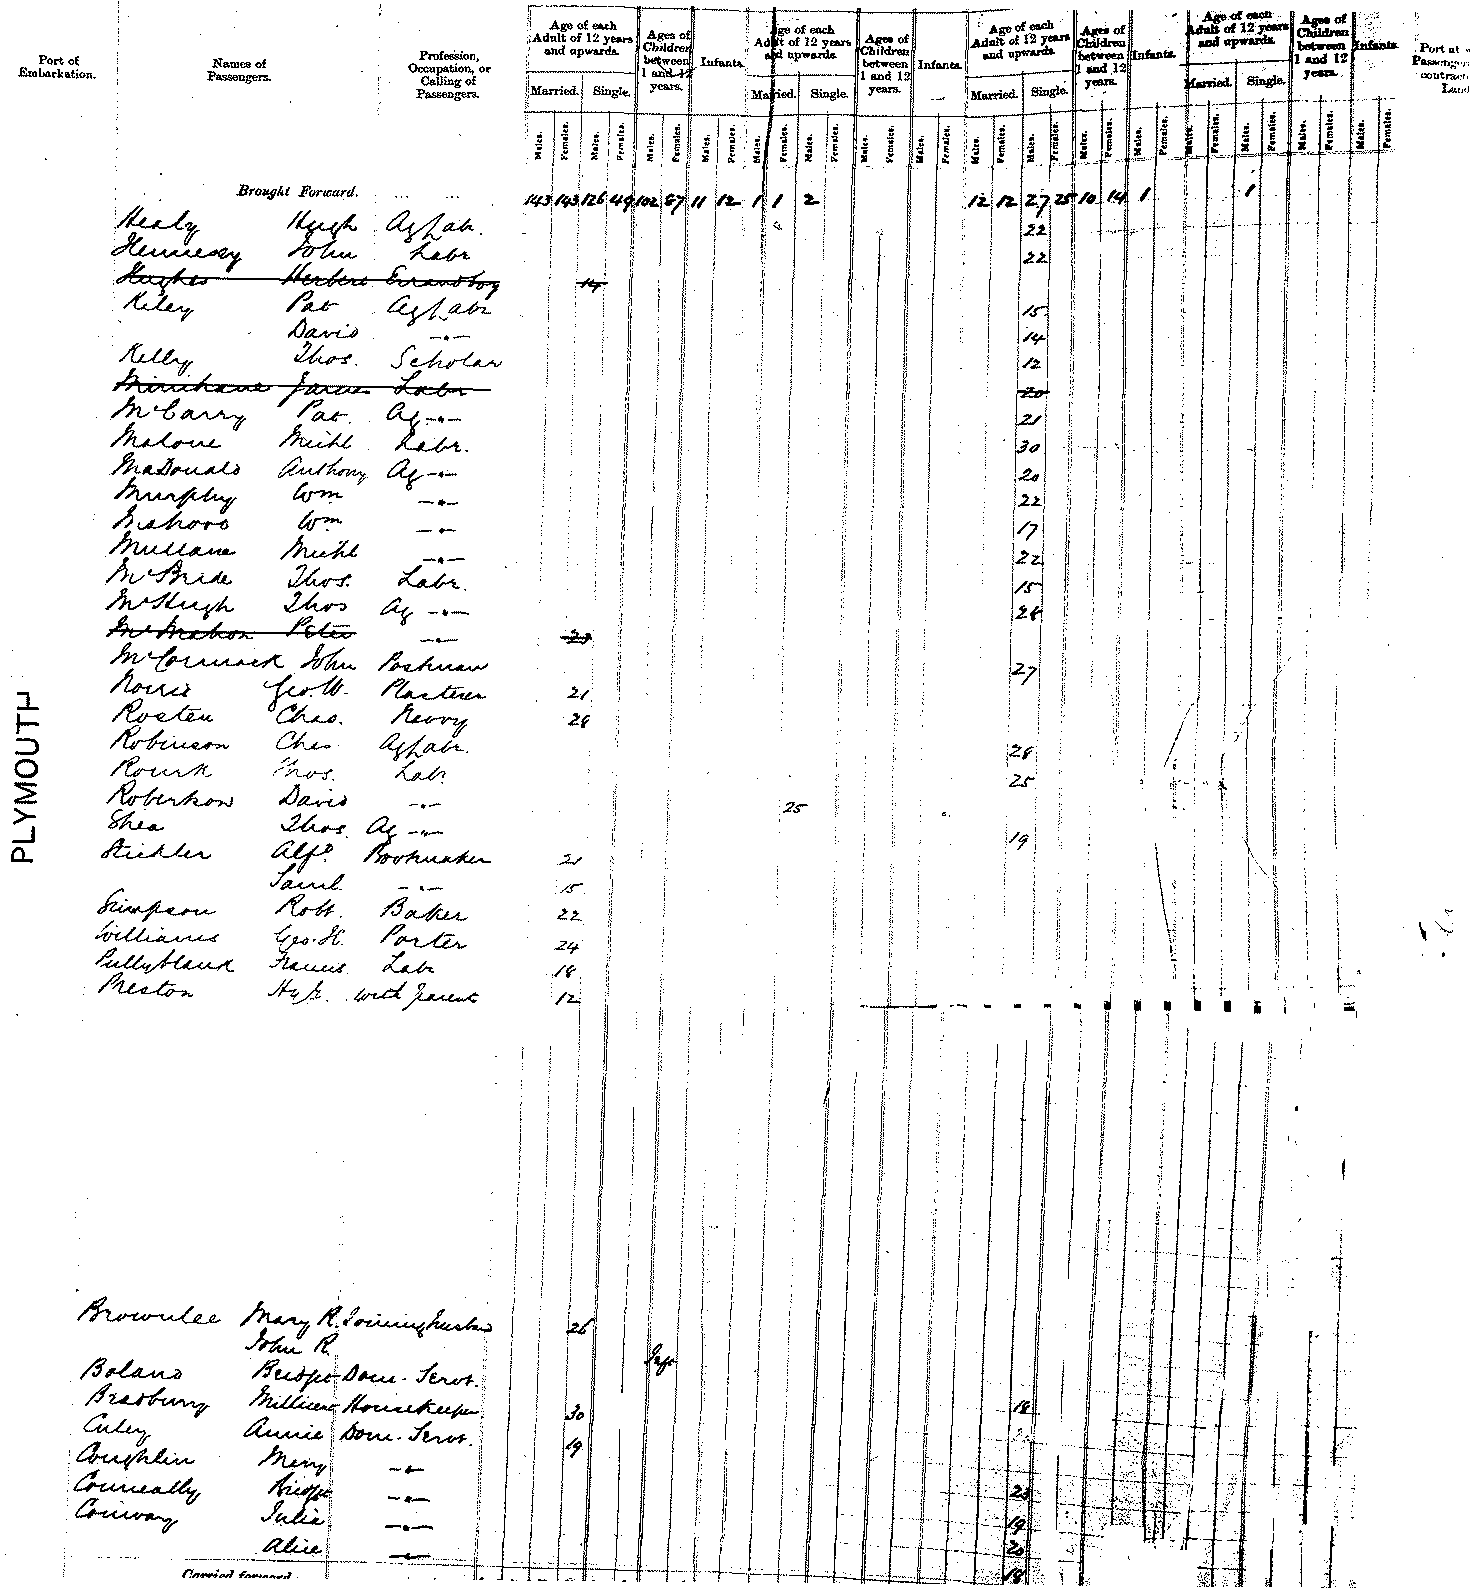 Port of Embarkation.
Names of Passengers.
Profession, Occupation, or Calling of Passengers.
Age of each Adult of 12 years and upwards. Ages of Children between 1 and 12 years. Infants. Age of each Adult of 12 years and upwards. Ages of Children between 1 and 12 years. Infants. Age of each Adult of 12 years and upwards. Ages of Children between 1 and 12 years. Infants. Age of each Adult of 12 years and upwards. Ages of Children between 1 and 12 years. Infants.
Port at
Passenger
contract
Land
Married. Single. Married. Single. Married. Single. Married. Single.
Males. Females. Males. Females. Males. Females. Males. Females. Males. Females. Males. Females. Males. Females. Males. Females. Males. Females. Males. Females. Males. Females. Males. Females. Males. Females. Males. Females. Males. Females. Males. Females.
Brought Forward. ... ... 143 143 126 49 102 67 11 12 1 1 2 12 12 27 25 10 14 1 1
Healy Hugh Ag Labr. 22
Hennessy John Labr 22
Hughes Herbert Errand boy 14
Kiley Pat Ag Labr 15
David -"- 14
Kelly Thos. Scholar 12
Minihane James Labr 20
McCarry Pat. Ag -"- 21
Malone Michl Labr. 30
MaDonald Anthony Ag -"- 20
Murphy Wm -"- 22
Wm -"- 17
Mullane Michl -"- 22
McBride Thos. Labr. 15
McHugh Thos Ag -"- 28
McMahon Peter -"- 23
McCormack John Postman 27
Norris Geo. W. Plasterer 21
Rosten Chas. Navvy 28
Robinson Chas Ag Labr. 28
Rourk Thos. Lab. 25
Robertson David -"- 25
Shea Thos. Ag -"- 19
Stickler Alfd. Bookmaker 21
Saml. -"- 15
Simpson Robt. Baker 22
Williams Geo. H. Porter 24
Pullyblank Francis Lab 18
Preston Hy J. with parent 12
PLYMOUTH
Brownlee Mary R. Joining husband 26
John R. Inft
Boland Bridget Dom. Servt. 18
Bradbury Millicent Housekeeper 30
Culey Annie Dom. Servt. 19
Coughlin Mary -"-
Conneally Bridget -"- 19
Conway Julia -"- 20
Alice -"- 18
Carried forward